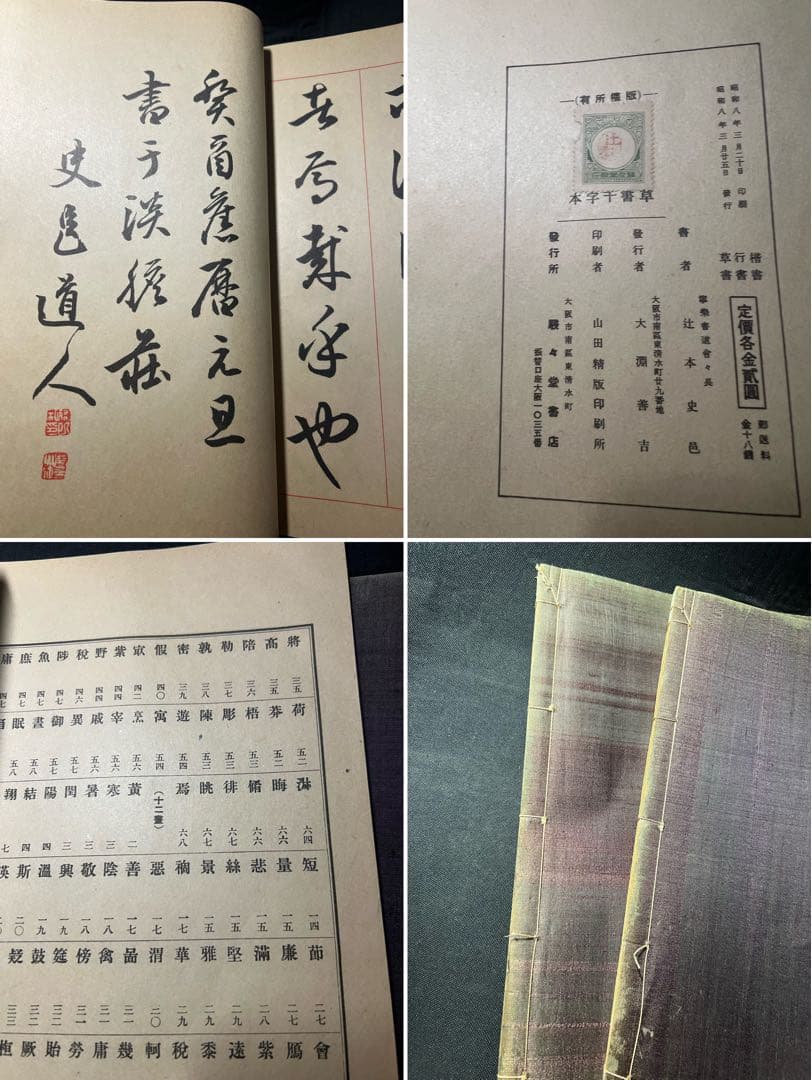 者焉哉乎也
癸酉舊曆元旦
書于淡
莊
史邑道人
昭和八年三月二十日 印刷
昭和八年三月廿五日 發行
(版權所有)
草書千字本
楷書
行書
草書
定價各金貳圓
郵送料
金十八錢
書者 寧樂書道會々長 辻本史邑
大阪市南區東淸水町廿九番地
發行者 大淵善吉
印刷者 山田精版印刷所
大阪市南區東淸水町
發行所 駸々堂書店
振替口座大阪一〇三五番
將 高 陪 勒 孰 密 假 寂 紫 野 稅 陟 魚 庶 庸
三五 三五 三六 三七 三八 三九 四〇 四二 四四 四四 四六 四七 四七 四七
荷 莽 梧 彫 陳 遊 寓 烹 宰 戚 異 御 晝 眠
五二 五二 五三 五三 五三 五四 五四 五六 五六 五六 五七 五八 五八 五八
晦 脩 徘 眺 焉 (十二畫) 黃 寒 暑 閏 陽 結 翔
六四 六六 六六 六七 六七 六八 二 三 三 三 四 四 七
短 量 悲 絲 景 禍 惡 善 陰 敬 興 溫 斯
一四 一五 一五 一五 一七 一七 一七 一七 一八 一八 一九 一九 二〇
節 廉 滿 堅 雅 華 渭 禽 傍 筵 鼓
二七 二七 二八 二九 二九 二九
會 鴈 紫 遠 黍 稅 軻 幾 庸 勞 貽 厥